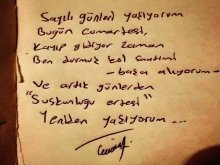 Sayılı günleri yaşıyorum
Bugün Cumartesi,
Kayıp gidiyor zaman
Ben durmuş kol saatime
- boğa alıyorum -
Ve artık günlerden
"Suskunluğu ertesi"
Yeniden yaşıyorum...